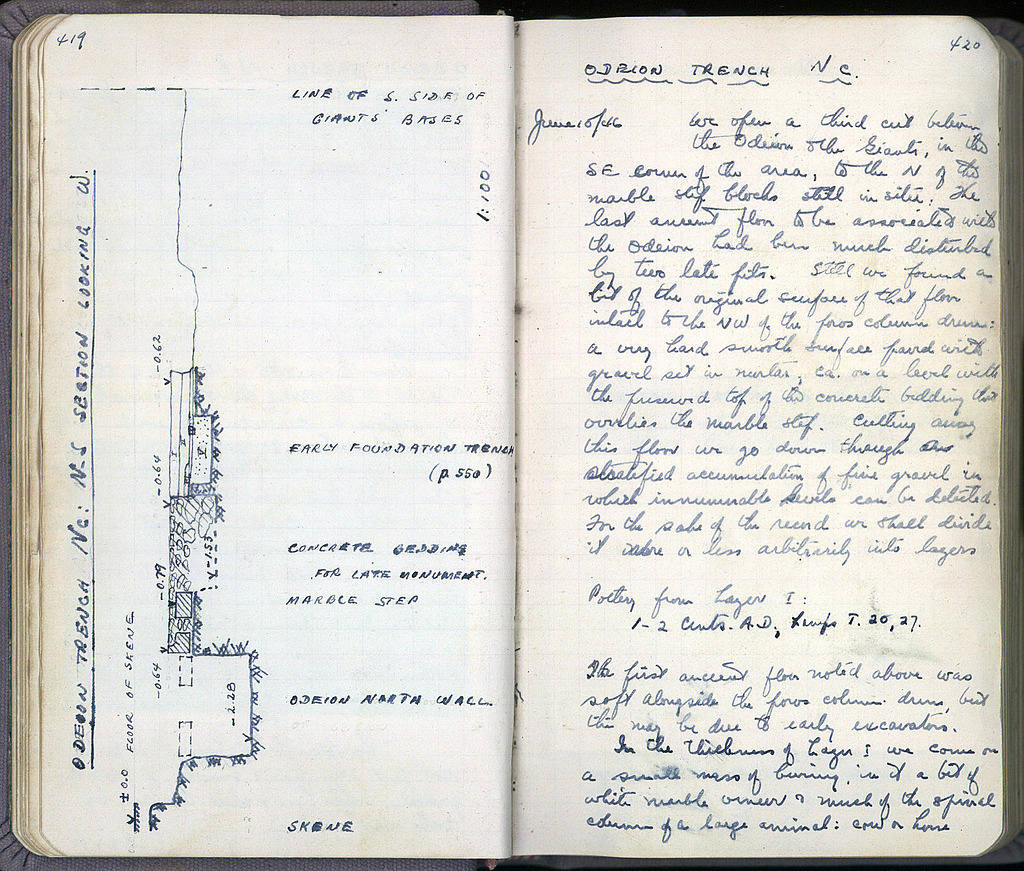 419
LINE OF S. SIDE OF
GIANTS' BASES
1:100
ODEION TRENCH NC: N-S SECTION LOOKING W.
-0.62
EARLY FOUNDATION TRENCH
(p 550)
-0.64
-1.53
CONCRETE BEDDING
FOR LATE MONUMENT.
-0.79
MARBLE STEP
-0.64
FLOOR OF SKENE
-2.28
ODEION NORTH WALL
±0.0
SKENE
420
ODEION TRENCH NC.
June 10/46 We open a third cut between
the Odeion & the Giants, in the
SE corner of the area, to the N of the
marble step blocks still in situ. The
last ancient floor to be associated with
the Odeion had been much disturbed
by two late pits. Still we found a
bit of the original surface of that floor
intact to the NW of the poros column drum:
a very hard smooth surface paved with
gravel set in mortar, ca. on a level with
the preserved top of the concrete bedding that
overlies the marble step. Cutting away
this floor we go down through
stratified accumulation of fine gravel in
which innumerable levels can be detected.
For the sake of the record we shall divide
it more or less arbitrarily into layers
Pottery from Layer I:
1-2 Cents. A.D., Lamps T. 20, 27.
The first ancient floor noted above was
soft alongside the poros column drum, but
this may be due to early excavators.
In the thickness of Layer I we come on
a small mass of burning, in it a bit of
white marble veneer & much of the spinal
column of a large animal: cow or horse.